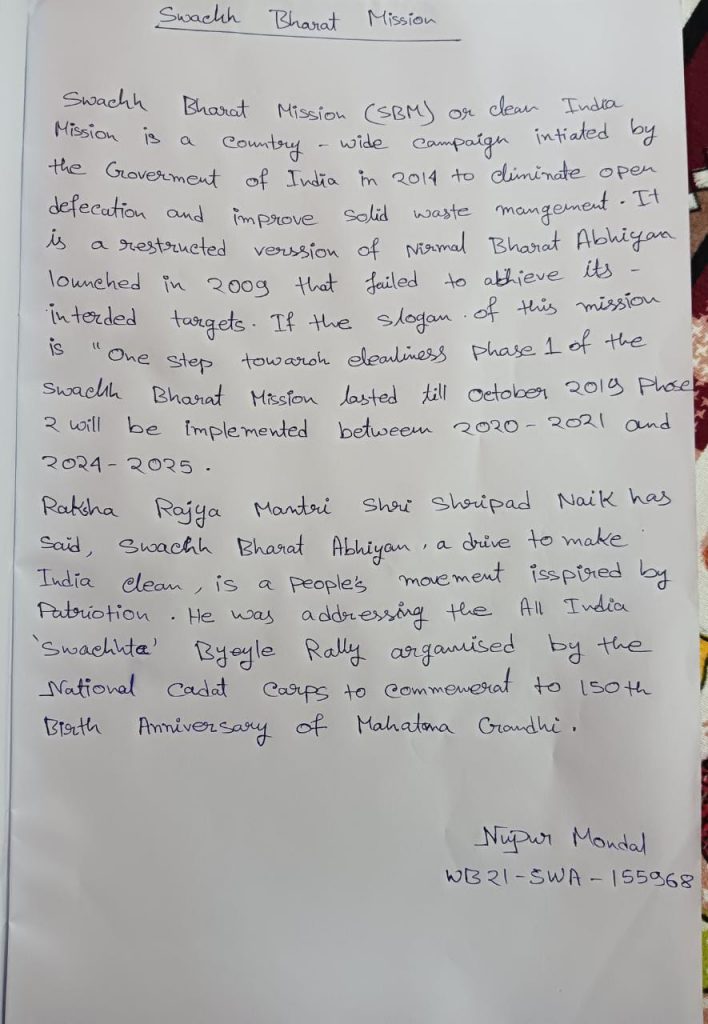 Swachh Bharat Mission
Swachh Bharat Mission (SBM) or clean India
Mission is a country - wide campaign intiated by
the Goverment of India in 2014 to eliminate open
defecation and improve solid waste mangement. It
is a restructed verssion of Nirmal Bharat Abhiyan
lounched in 2009 that failed to athieve its -
interded targets. If the slogan of this mission
is "One step towarsh cleanliness phase 1 of the
Swachh Bharat Mission lasted till October 2019 Phase
2 will be implemented betweem 2020 - 2021 and
2024 - 2025.
Raksha Rajya Mantri Shri Shripad Naik has
Said, Swachh Bharat Abhiyan, a drive to make
India clean, is a people's movement isspired by
Patriotion. He was addressing the All India
'Swachhta' Byeyle Rally arganised by the
National Cadat Carps to commewerat to 150th
Birth Anniversary of Mahatma Gandhi.
Nupur Mondal
WB21-SWA-155968